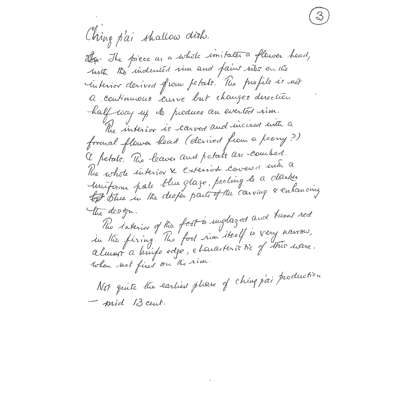 3
Ching p'ai shallow dish.
The piece as a whole imitates a flower head,
with the indented rim and faint ribs on the
interior derived from petals. The profile is not
a continuous curve but changes direction
half way up to produce an everted rim.
The interior is carved and incised with a
formal flower head (derived from a peony?)
& petals. The leaves and petals are combed.
The whole interior & exterior covered with a
uniform pale blue glaze, pooling to a darker
blue in the deeper parts of the carving & enhancing
the design.
The interior of the foot is unglazed and burnt red
in the firing. The foot rim itself is very narrow,
almost a knife edge, characteristic of this ware
when not fired on the rim.
Not quite the earliest phase of ching p'ai production
— mid 13 cent.